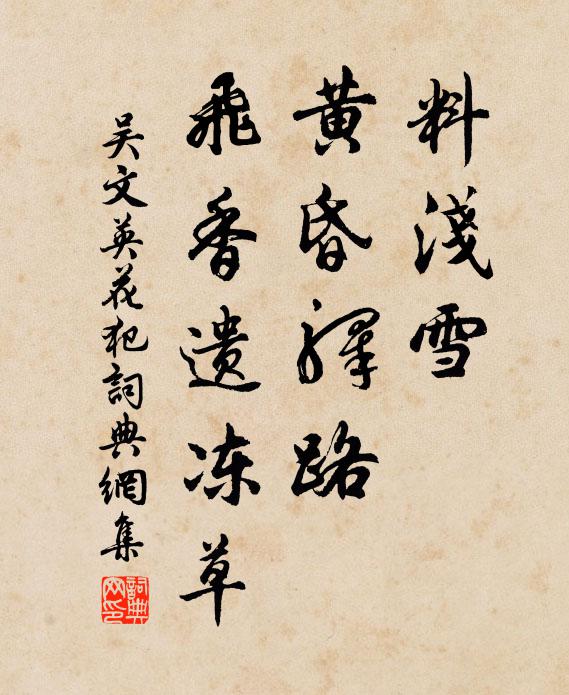 料淺雪
黄昏驛路
飛香遺冻草
吴文英花犯詞典網集
詞典网印